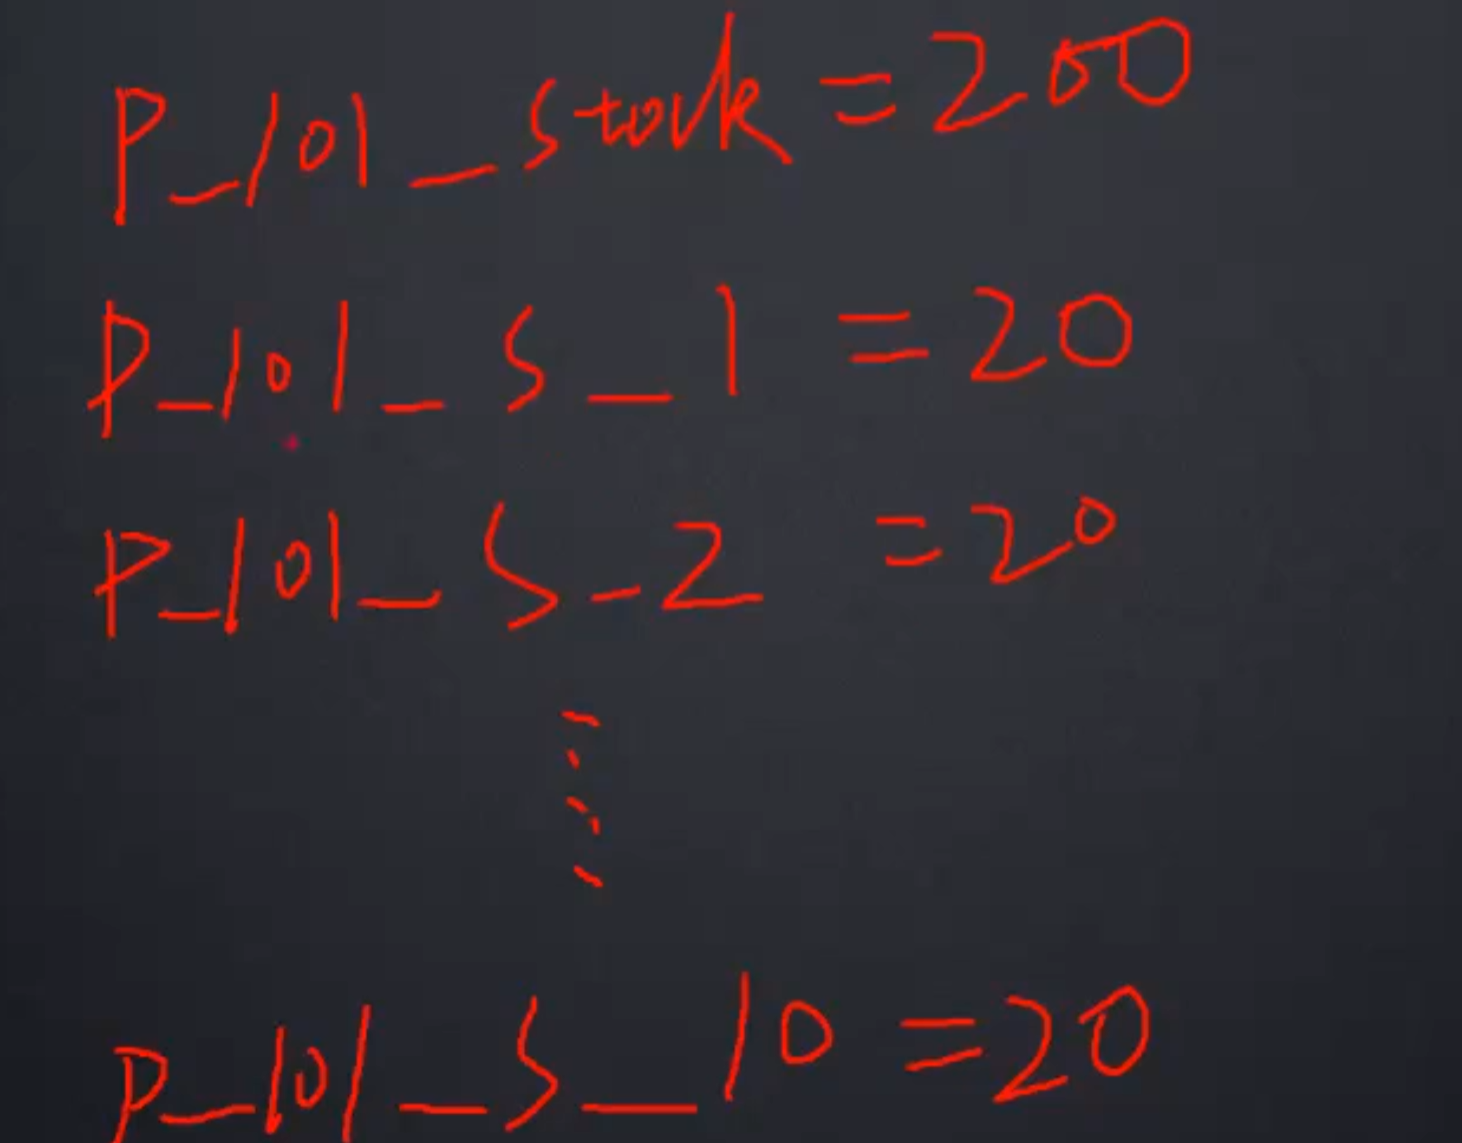 P_101_stock=200
P_101_S_1=20
P_101_S_2=20
P_101_S_10=20